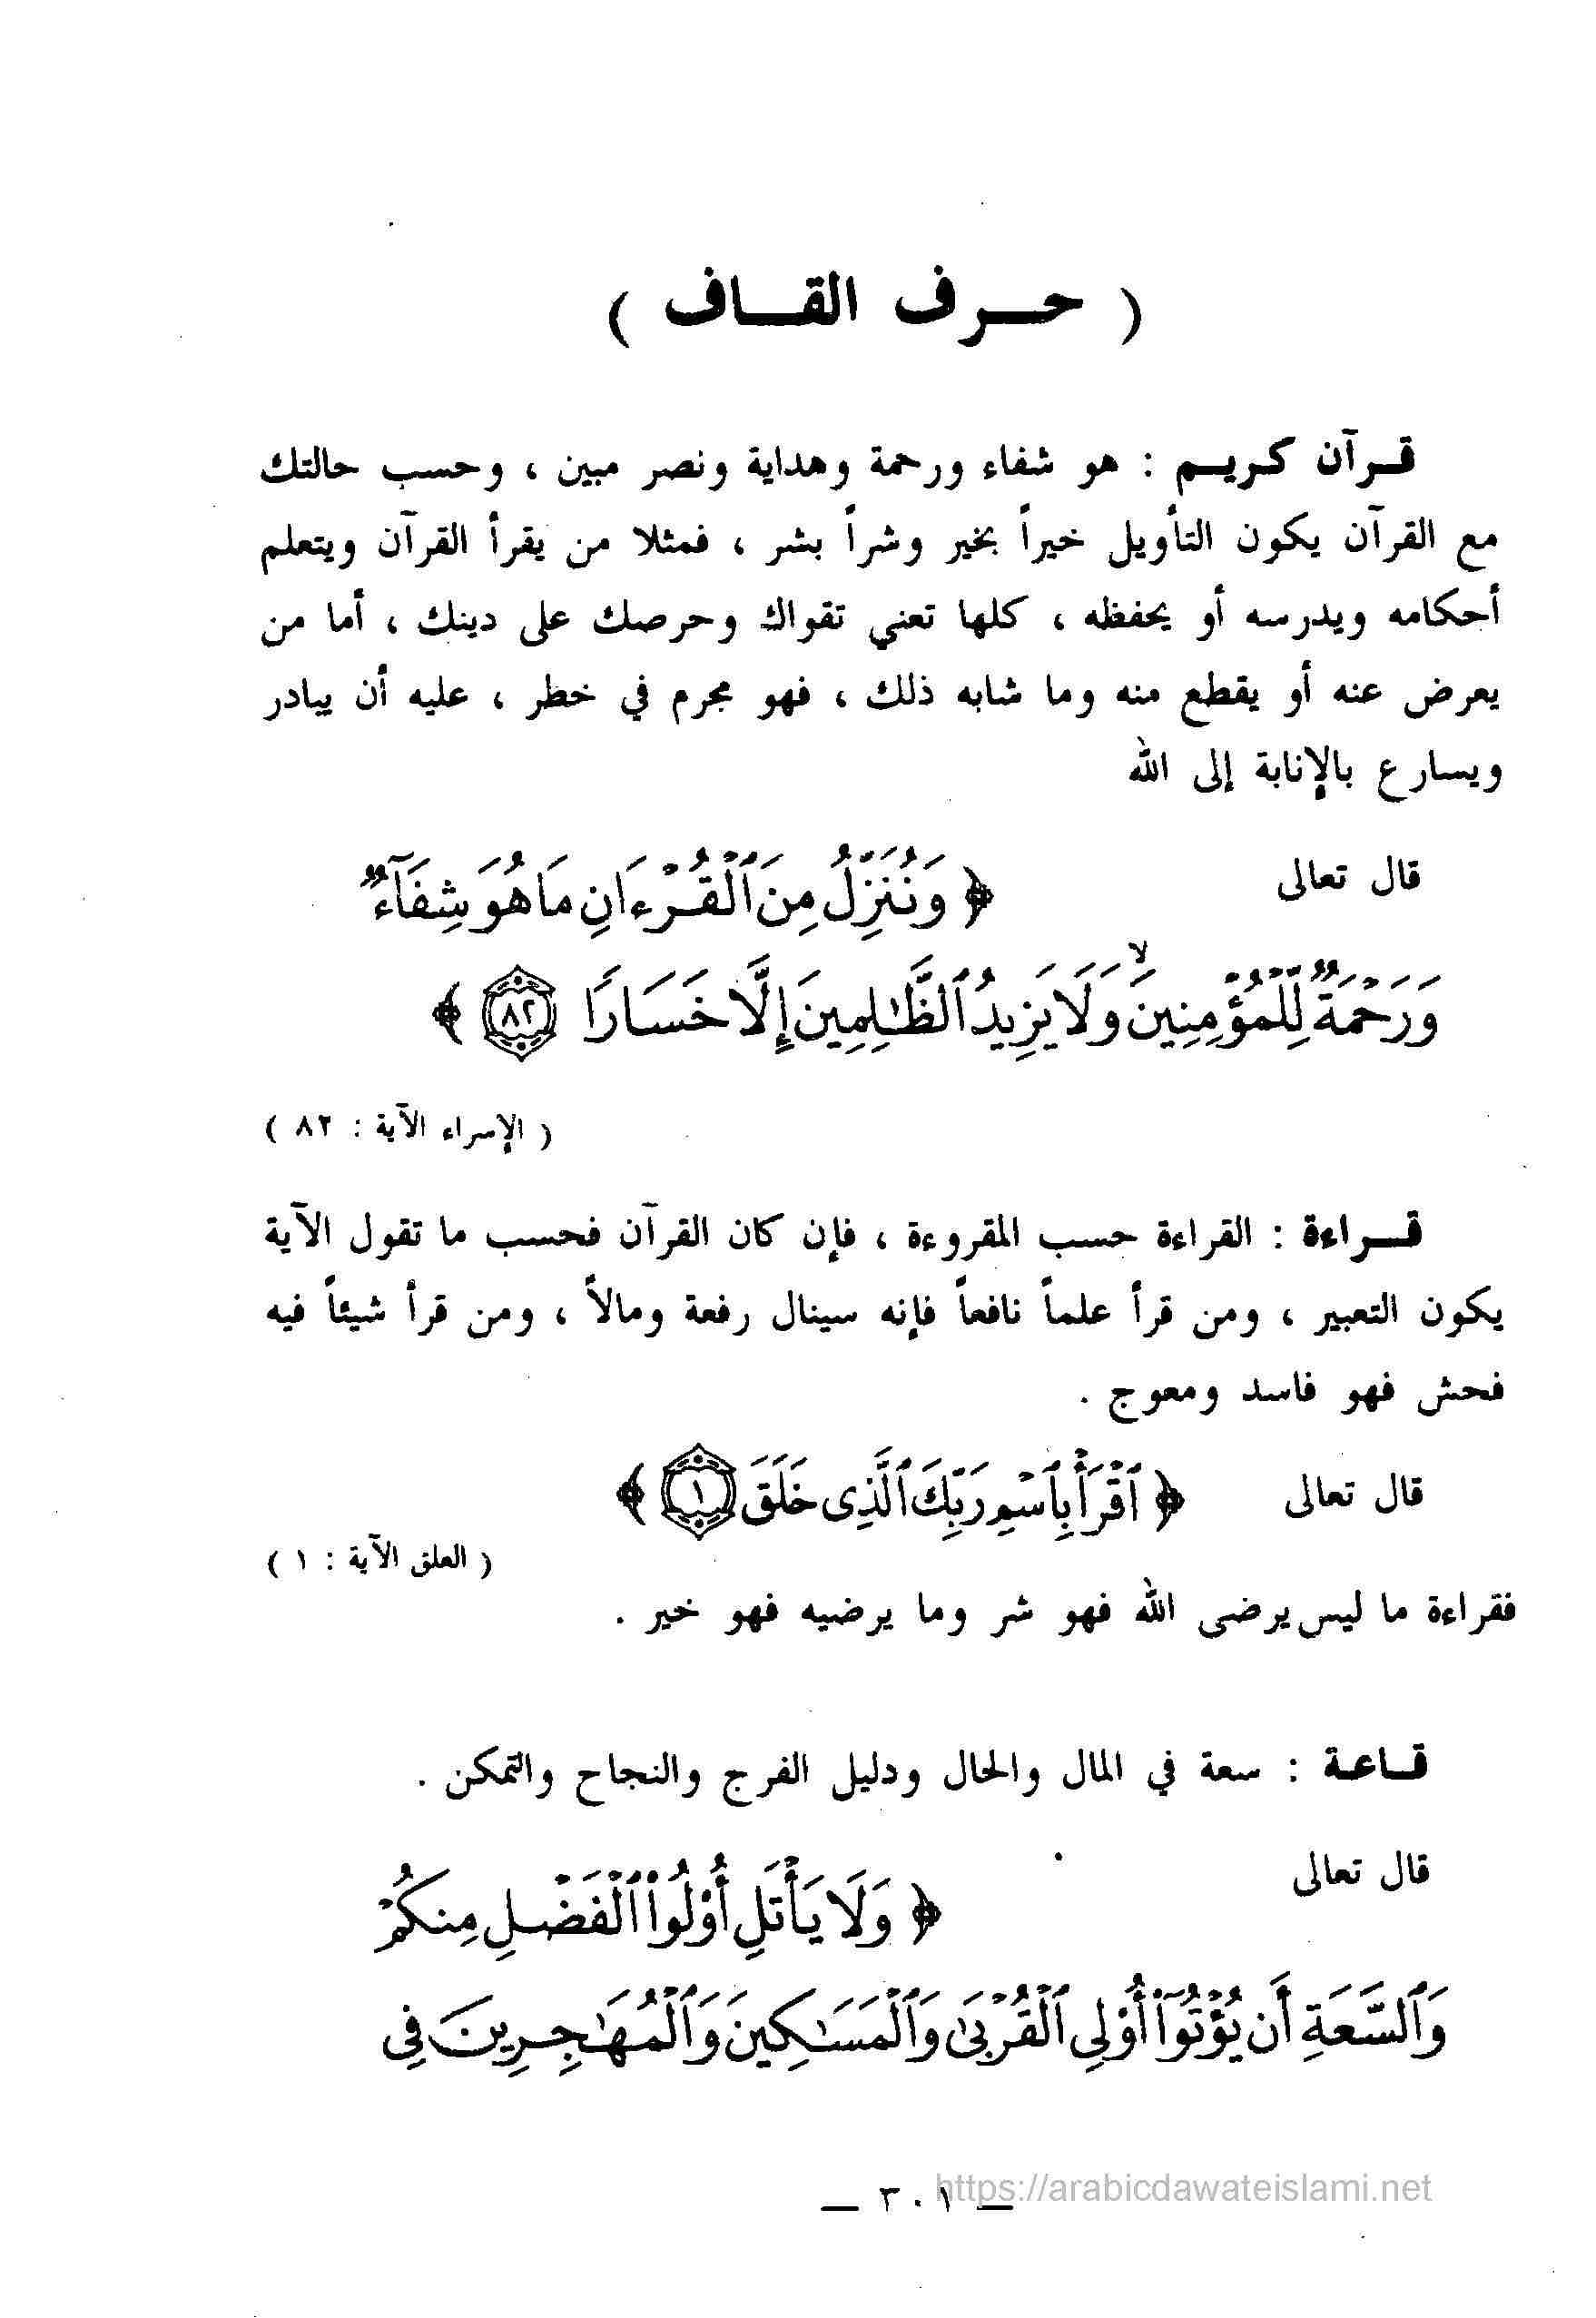 ( حـرف القـاف )
قـرآن كـريـم : هو شفاء ورحمة وهداية ونصر مبين ، وحسب حالتك
مع القرآن يكون التأويل خيراً بخير وشراً بشر ، فمثلا من يقرأ القرآن ويتعلم
أحكامه ويدرسه أو يحفظه ، كلها تعني تقواك وحرصك على دينك ، أما من
يعرض عنه أو يقطع منه وما شابه ذلك ، فهو مجرم في خطر ، عليه أن يبادر
ويسارع بالإنابة إلى الله
قال تعالى ﴿ وَنُنَزِّلُ مِنَ ٱلْقُرْءَانِ مَا هُوَ شِفَآءٌ
وَرَحْمَةٌ لِّلْمُؤْمِنِينَ ۙ وَلَا يَزِيدُ ٱلظَّٰلِمِينَ إِلَّا خَسَارًا ٨٢ ﴾
( الإسراء الآية : ٨٢ )
قـراءة : القراءة حسب المقروءة ، فإن كان القرآن فحسب ما تقول الآية
يكون التعبير ، ومن قرأ علماً نافعاً فإنه سينال رفعة ومالاً ، ومن قرأ شيئاً فيه
فحش فهو فاسد ومعوج .
قال تعالى ﴿ ٱقْرَأْ بِٱسْمِ رَبِّكَ ٱلَّذِى خَلَقَ ١ ﴾
( العلق الآية : ١ )
فقراءة ما ليس يرضى الله فهو شر وما يرضيه فهو خير .
قـاعـة : سعة في المال والحال ودليل الفرج والنجاح والتمكن .
قال تعالى ﴿ وَلَا يَأْتَلِ أُوْلُواْ ٱلْفَضْلِ مِنكُمْ
وَٱلسَّعَةِ أَن يُؤْتُوٓاْ أُوْلِى ٱلْقُرْبَىٰ وَٱلْمَسَٰكِينَ وَٱلْمُهَٰجِرِينَ فِى
— ٣٠١ —
https://arabicdawateislami.net